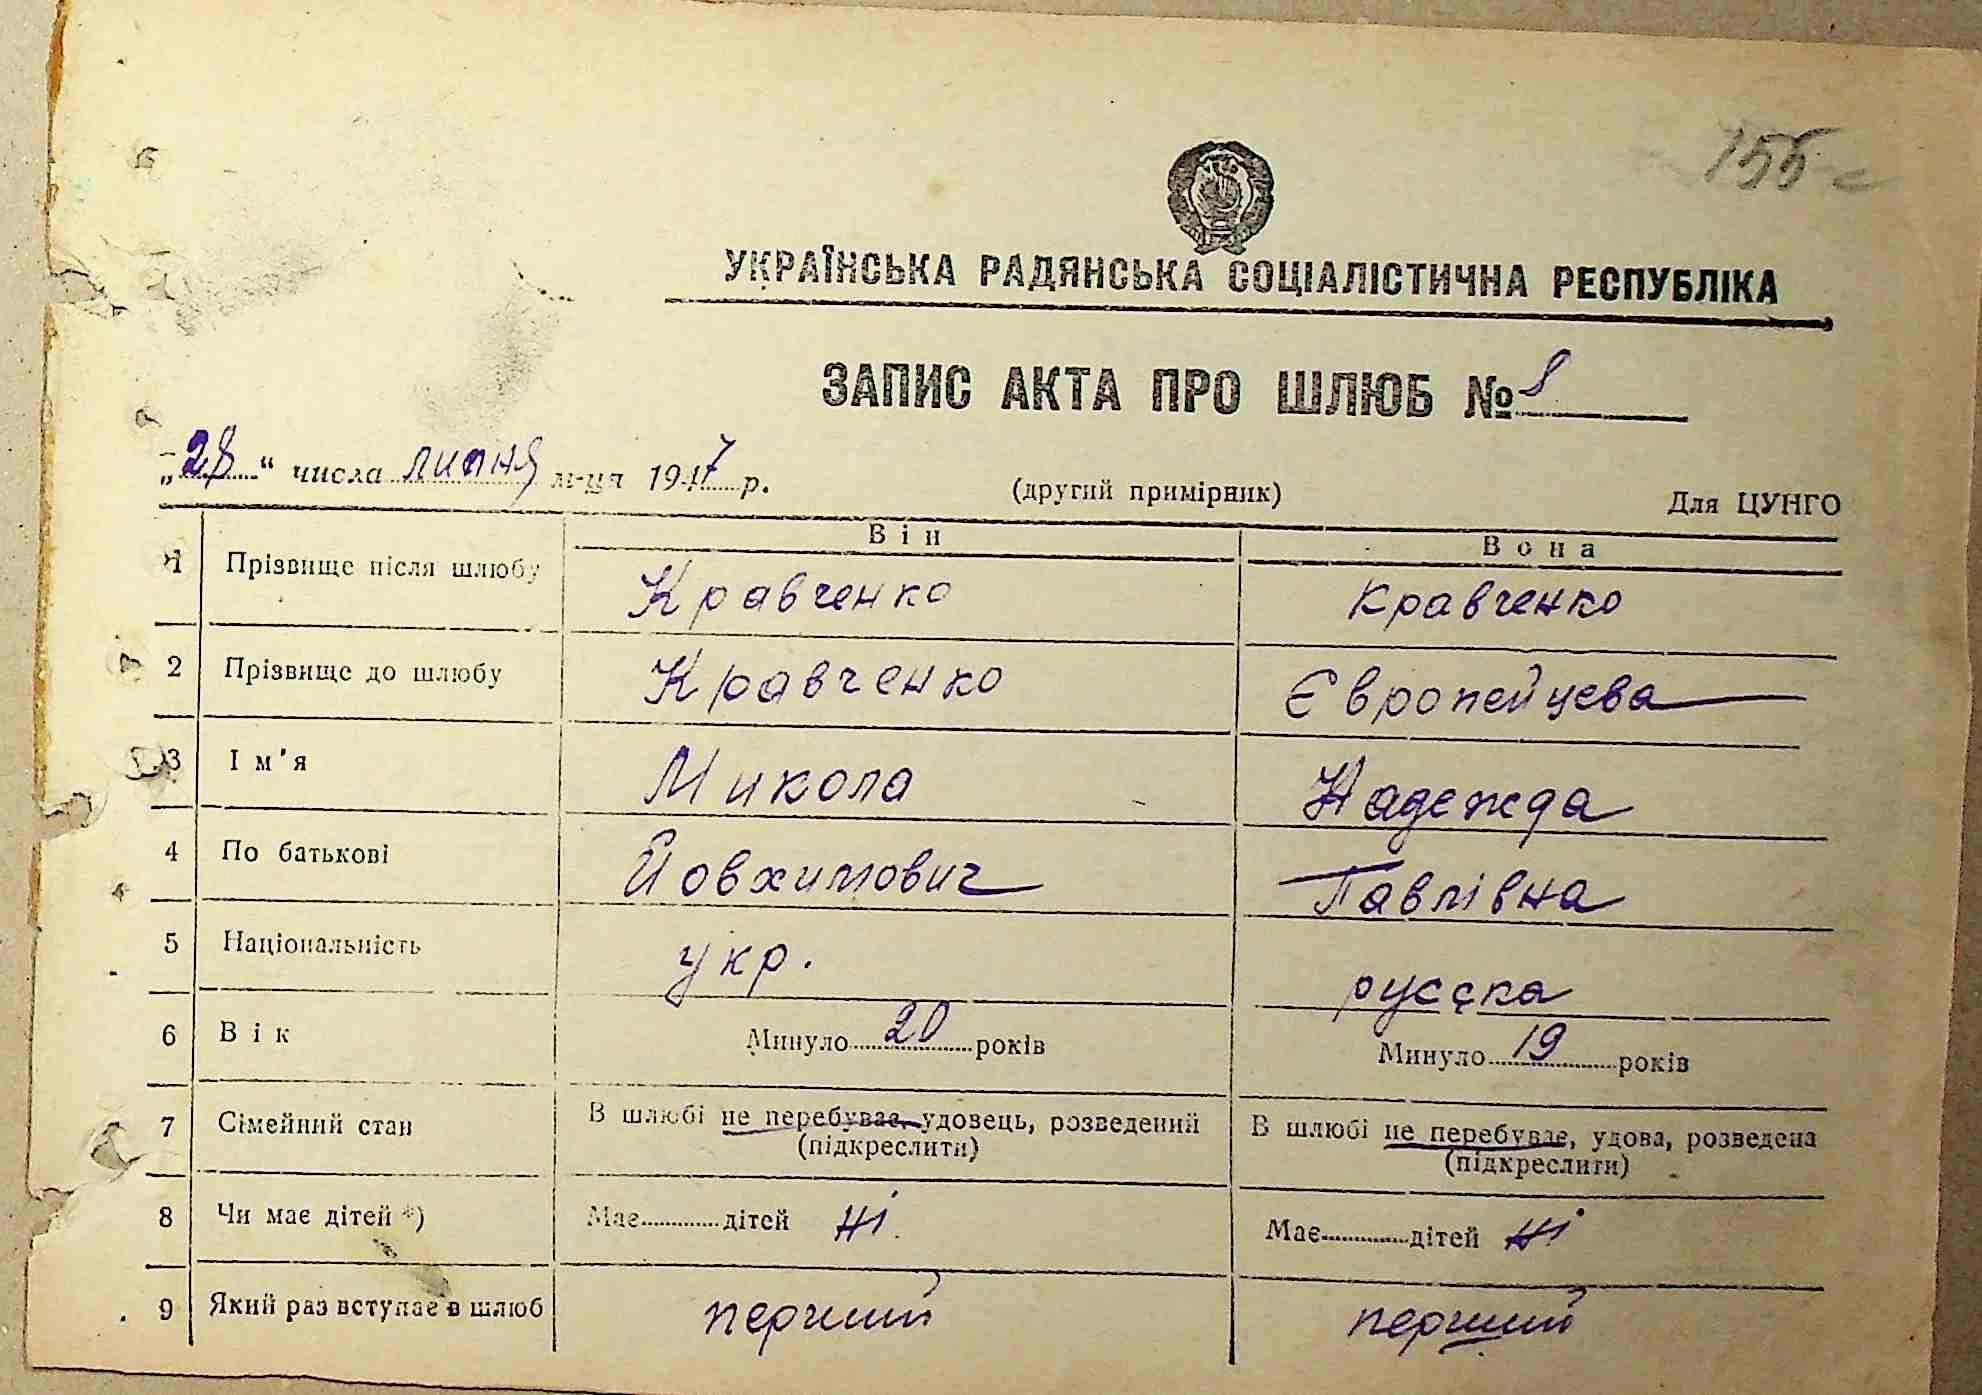 155
УКРАЇНСЬКА РАДЯНСЬКА СОЦІАЛІСТИЧНА РЕСПУБЛІКА
ЗАПИС АКТА ПРО ШЛЮБ № 8
„28“ числа липня м-ця 1947 р. (другий примірник) Для ЦУНГО
Він Вона
1 Прізвище після шлюбу Кравченко Кравченко
2 Прізвище до шлюбу Кравченко Європейцева
3 Ім'я Микола Надежда
4 По батькові Йовхимович Павлівна
5 Національність укр. русска
6 Вік Минуло 20 років Минуло 19 років
7 Сімейний стан В шлюбі не перебуває, удовець, розведений В шлюбі не перебуває, удова, розведена
(підкреслити) (підкреслити)
8 Чи має дітей *) Має дітей ні Має дітей ні
9 Який раз вступає в шлюб перший перший